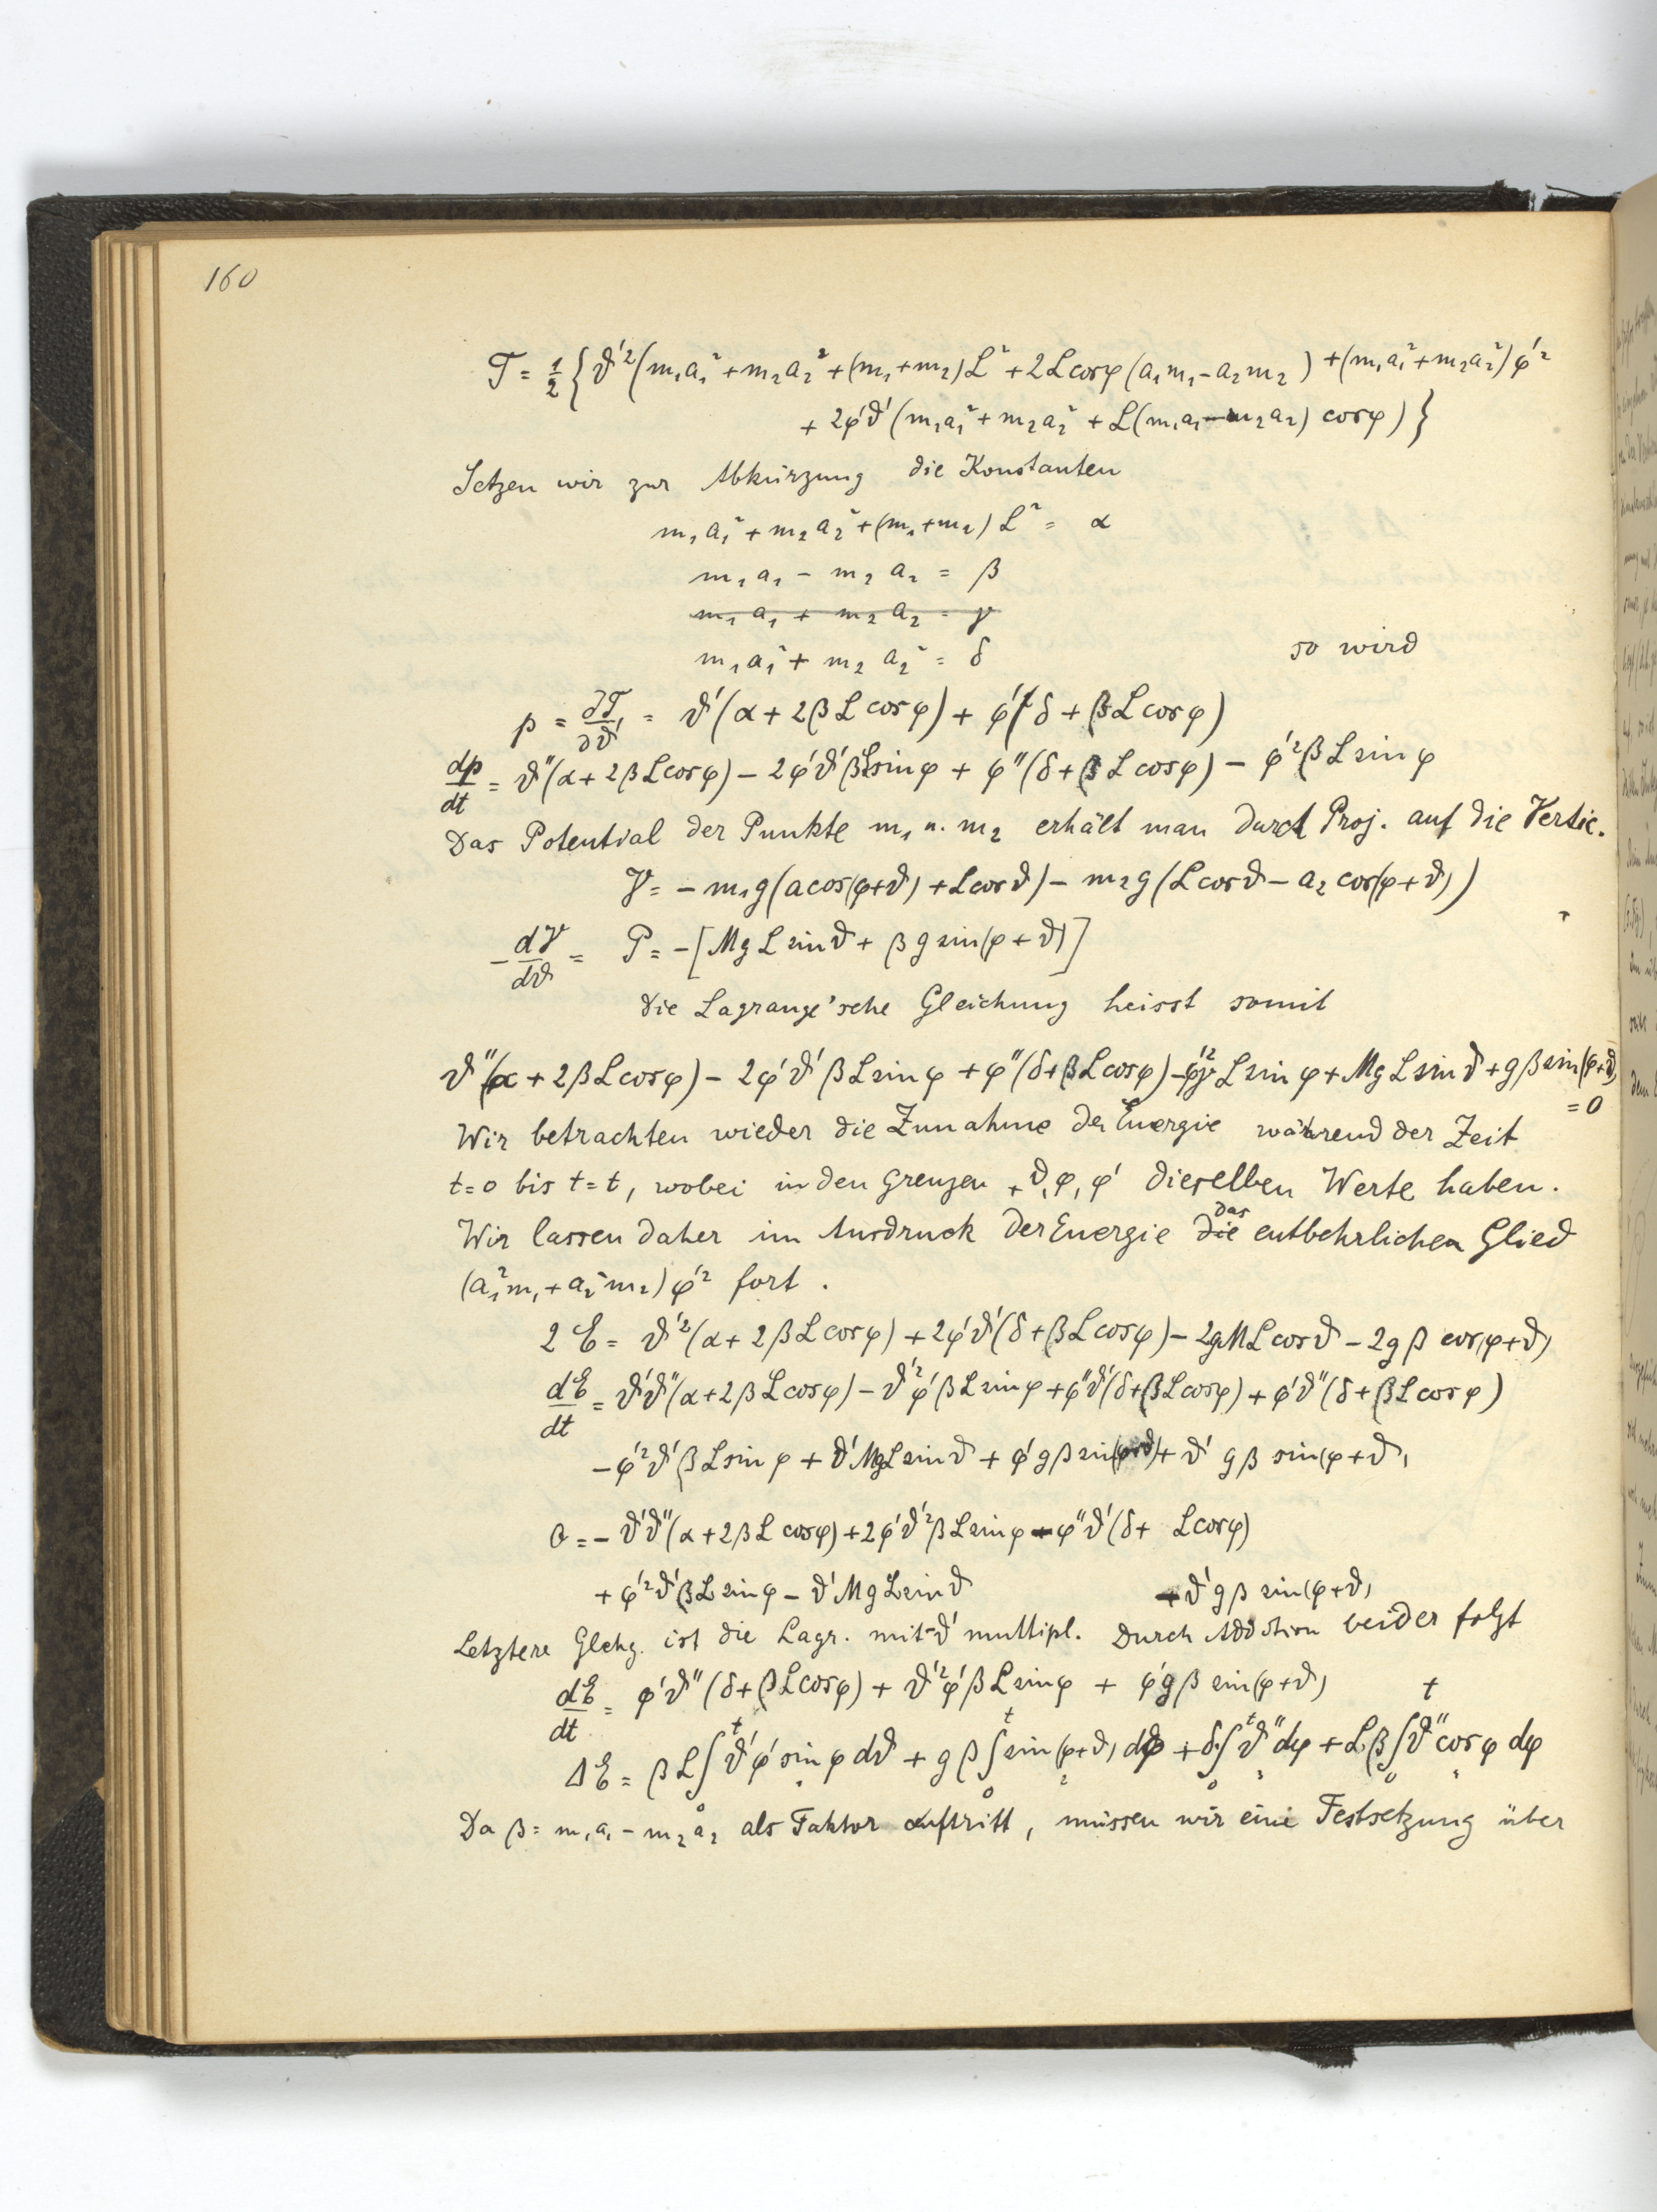 160
T = ½ { ϑ'² (m₁a₁² + m₂a₂² + (m₁+m₂)L² + 2L cosφ (a₁m₁ - a₂m₂) + (m₁a₁² + m₂a₂²) φ'²
+ 2φ'ϑ' (m₁a₁² + m₂a₂² + L(m₁a₁ - m₂a₂) cosφ) }
Setzen wir zur Abkürzung die Konstanten
m₁a₁² + m₂a₂² + (m₁+m₂) L² = α
m₁a₁ - m₂a₂ = β
m₁a₁ + m₂a₂ = γ
m₁a₁² + m₂a₂² = δ so wird
p = ∂T/∂ϑ' = ϑ'(α + 2βL cosφ) + φ'(δ + βL cosφ)
dp/dt = ϑ''(α + 2βL cosφ) - 2φ'ϑ'βL sinφ + φ''(δ + βL cosφ) - φ'²βL sinφ
Das Potential der Punkte m₁ u. m₂ erhält man durch Proj. auf die Vertic.
V = - m₁g(a cos(φ+ϑ) + L cosϑ) - m₂g(L cosϑ - a₂ cos(φ+ϑ))
- dV/dϑ = P = -[MgL sinϑ + βg sin(φ+ϑ)]
Die Lagrange'sche Gleichung heisst somit
ϑ''(α + 2βL cosφ) - 2φ'ϑ'βL sinφ + φ''(δ + βL cosφ) - φ'²γL sinφ + MgL sinϑ + gβ sin(φ+ϑ)
= 0
Wir betrachten wieder die Zunahme der Energie während der Zeit
t=0 bis t=t, wobei in den Grenzen ϑ, φ, φ' dieselben Werte haben.
das
Wir lassen daher im Ausdruck der Energie die entbehrlichen Glied
(a₁²m₁ + a₂²m₂) φ'² fort.
2E = ϑ'²(α + 2βL cosφ) + 2φ'ϑ'(δ + βL cosφ) - 2gML cosϑ - 2gβ cos(φ+ϑ)
dE/dt = ϑ'ϑ''(α + 2βL cosφ) - ϑ'²φ'βL sinφ + φ''ϑ'(δ + βL cosφ) + φ'ϑ''(δ + βL cosφ)
- φ'²ϑ'βL sinφ + ϑ'MgL sinϑ + φ'gβ sin(φ+ϑ) + ϑ' gβ sin(φ+ϑ)
0 = - ϑ'ϑ''(α + 2βL cosφ) + 2φ'ϑ'²βL sinφ - φ''ϑ'(δ + L cosφ)
+ φ'²ϑ'βL sinφ - ϑ'MgL sinϑ - ϑ'gβ sin(φ+ϑ)
Letztere Glchg. ist die Lagr. mit -ϑ' multipl. Durch Addition beider folgt
dE/dt = φ'ϑ''(δ + βL cosφ) + ϑ'²φ'βL sinφ + φ'gβ sin(φ+ϑ)
ΔE = βL∫₀ᵗ ϑ'φ' sinφ dϑ + gβ∫₀ᵗ sin(φ+ϑ) dφ + δ∫₀ᵗ ϑ'' dφ + Lβ∫₀ᵗ ϑ'' cosφ dφ
Da β = m₁a₁ - m₂a₂ als Faktor auftritt, müssen wir eine Festsetzung über